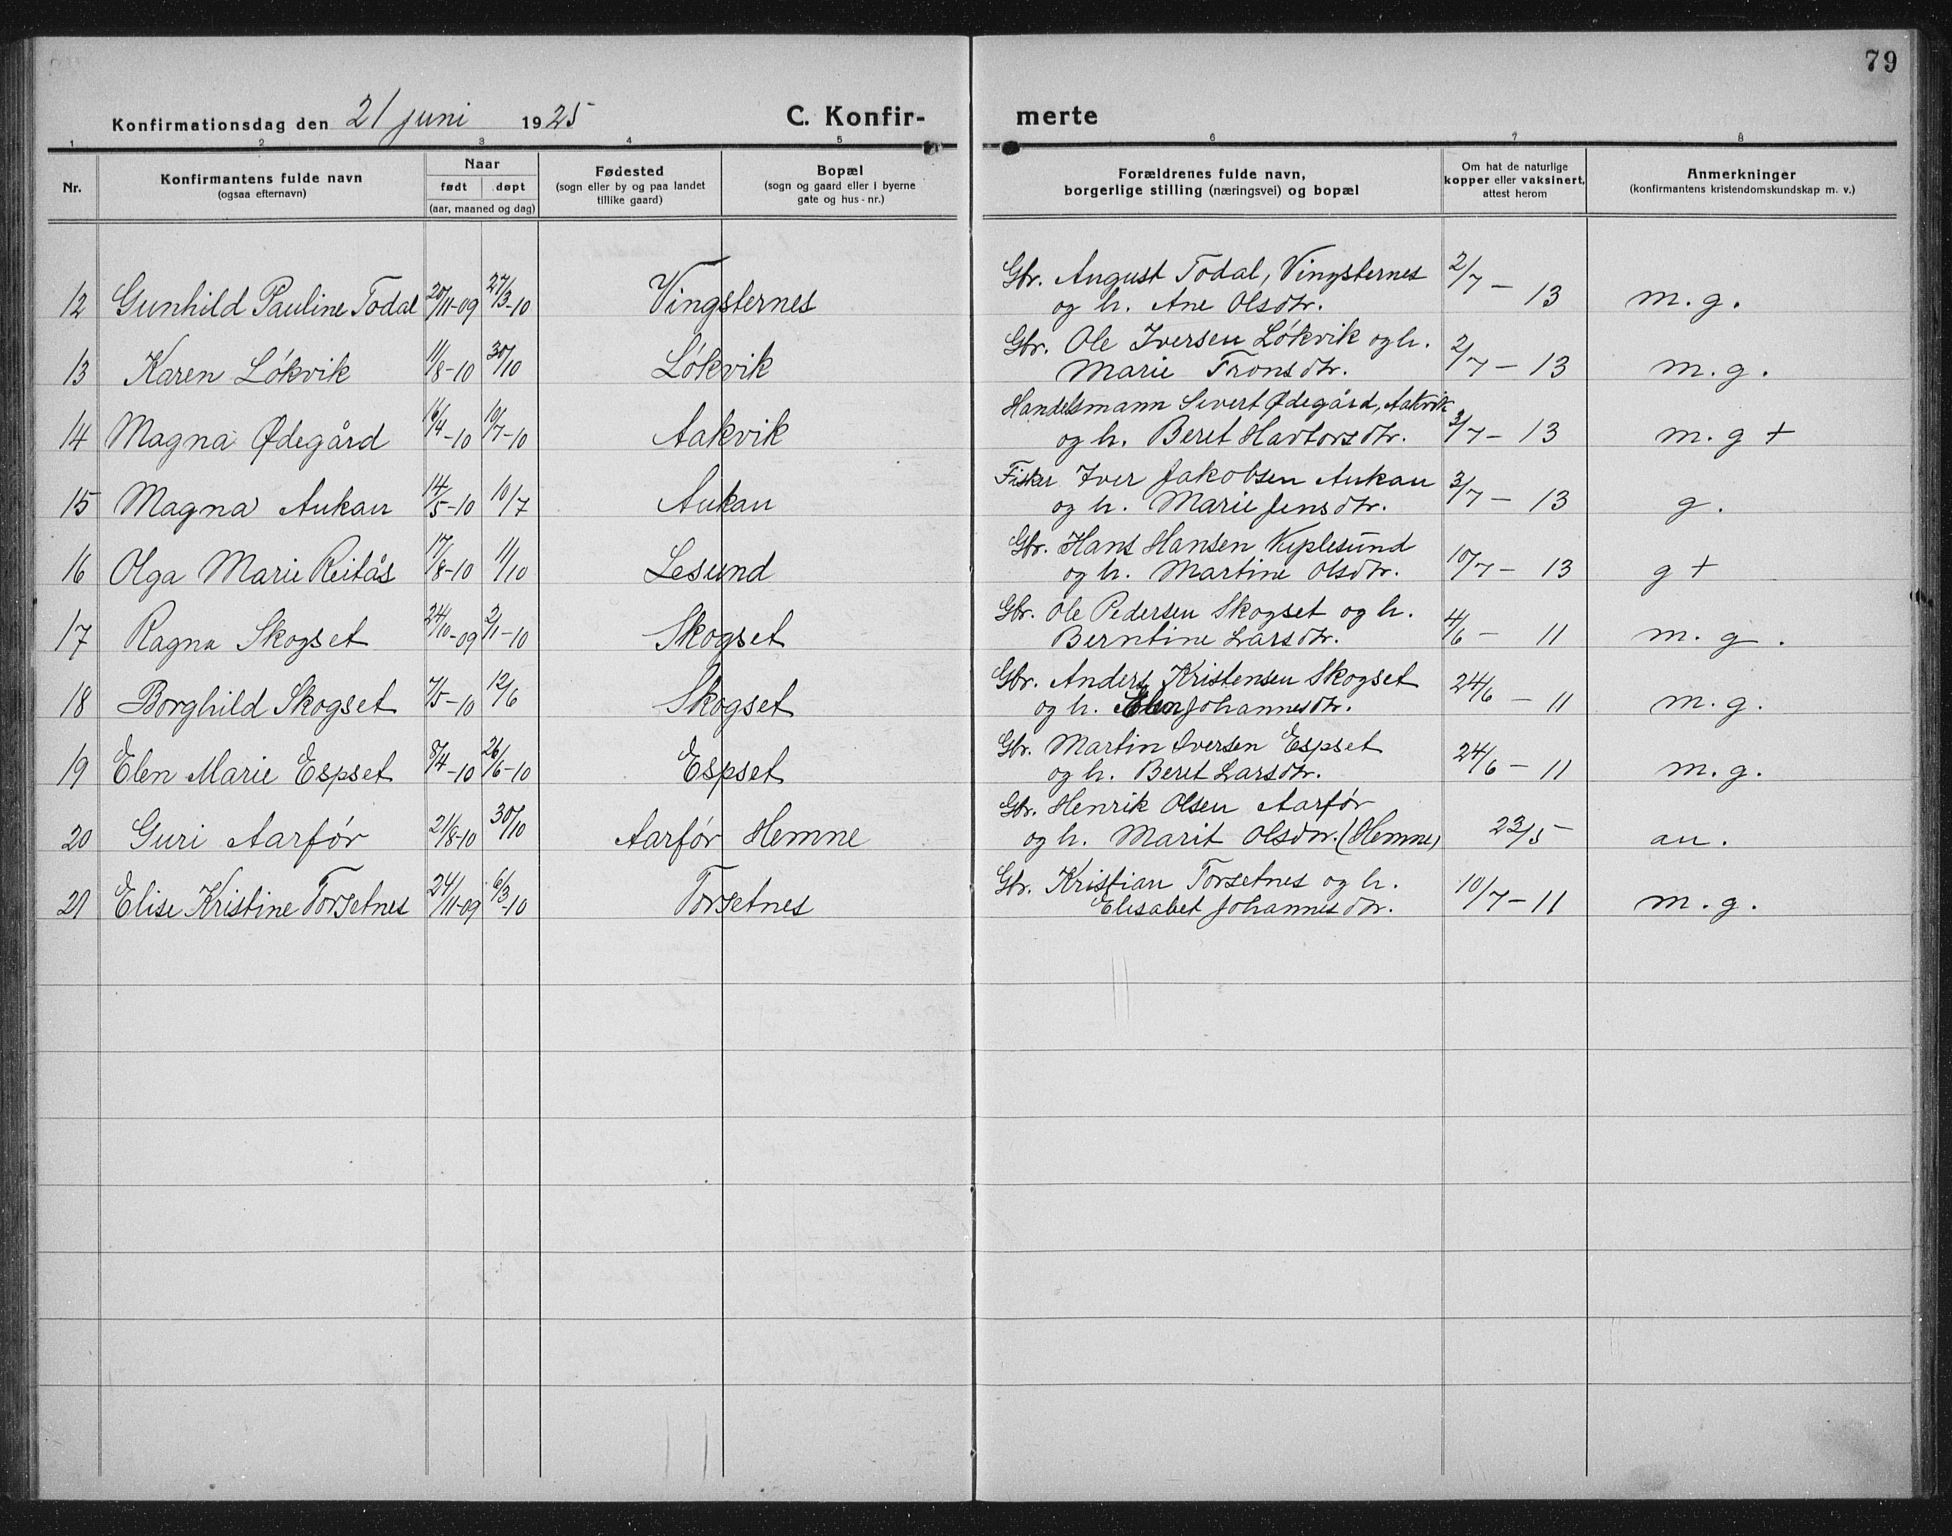 79
Konfirmationsdag den 21 juni 1925 C. Konfir- merte
1 2 3 4 5 6 7 8
Nr. Konfirmantens fulde navn (ogsaa efternavn) Naar født døpt (aar, maaned og dag) Fødested (sogn eller by og paa landet tillike gaard) Bopæl (sogn og gaard eller i byerne gate og hus-nr.) Forældrenes fulde navn, borgerlige stilling (næringsvei) og bopæl Om hat de naturlige kopper eller vaksinert, attest herom Anmerkninger (konfirmantens kristendomskundskap m. v.)
12 Gunhild Pauline Todal 20/11-09 27/3-10 Vingsternes Gbr. August Todal, Vingsternes 2/7 - 13 m. g.
og h. Ane Olsdtr.
13 Karen Løkvik 11/8-10 30/10 Løkvik Gbr. Ole Iversen Løkvik og h. 2/7 - 13 m. g.
Marie Tronsdtr.
14 Magna Ødegård 16/4-10 10/7-10 Aakvik Handelsmann Sivert Ødegård, Aakvik 3/7 - 13 m. g +
og h. Beret Havtorsdtr.
15 Magna Aukan 14/5-10 10/7 Aukan Fisker Iver Jakobsen Aukan 3/7 - 13 g.
og h. Marie Jensdtr.
16 Olga Marie Reitås 17/8-10 11/10 Lesund Gbr. Hans Hansen 10/7 - 13 g +
og h. Martine Olsdtr.
17 Ragna Skogset 24/10-09 2/1-10 Skogset Gbr. Ole Pedersen Skogset og h. 4/6 - 11 m. g.
Berntine Larsdtr.
18 Borghild Skogset 7/5-10 12/6 Skogset Gbr. Anders Kristensen Skogset 24/6 - 11 m. g.
og h. Elen Johannesdtr.
19 Elen Marie Espset 8/4-10 26/6-10 Espset Gbr. Martin Iversen Espset 24/6 - 11 m. g.
og h. Beret Larsdtr.
20 Guri Aarfør 21/8-10 30/10 Aarfør Hemne Gbr. Henrik Olsen Aarfør
og h. Marit Olsdtr. (Hemne) 23/5 an.
21 Elise Kristine Torsetnes 24/11-09 6/3-10 Torsetnes Gbr. Kristian Torsetnes og h. 10/7 - 11 m. g.
Elisabet Johannesdtr.